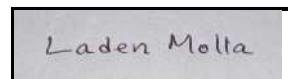 Laden Molla